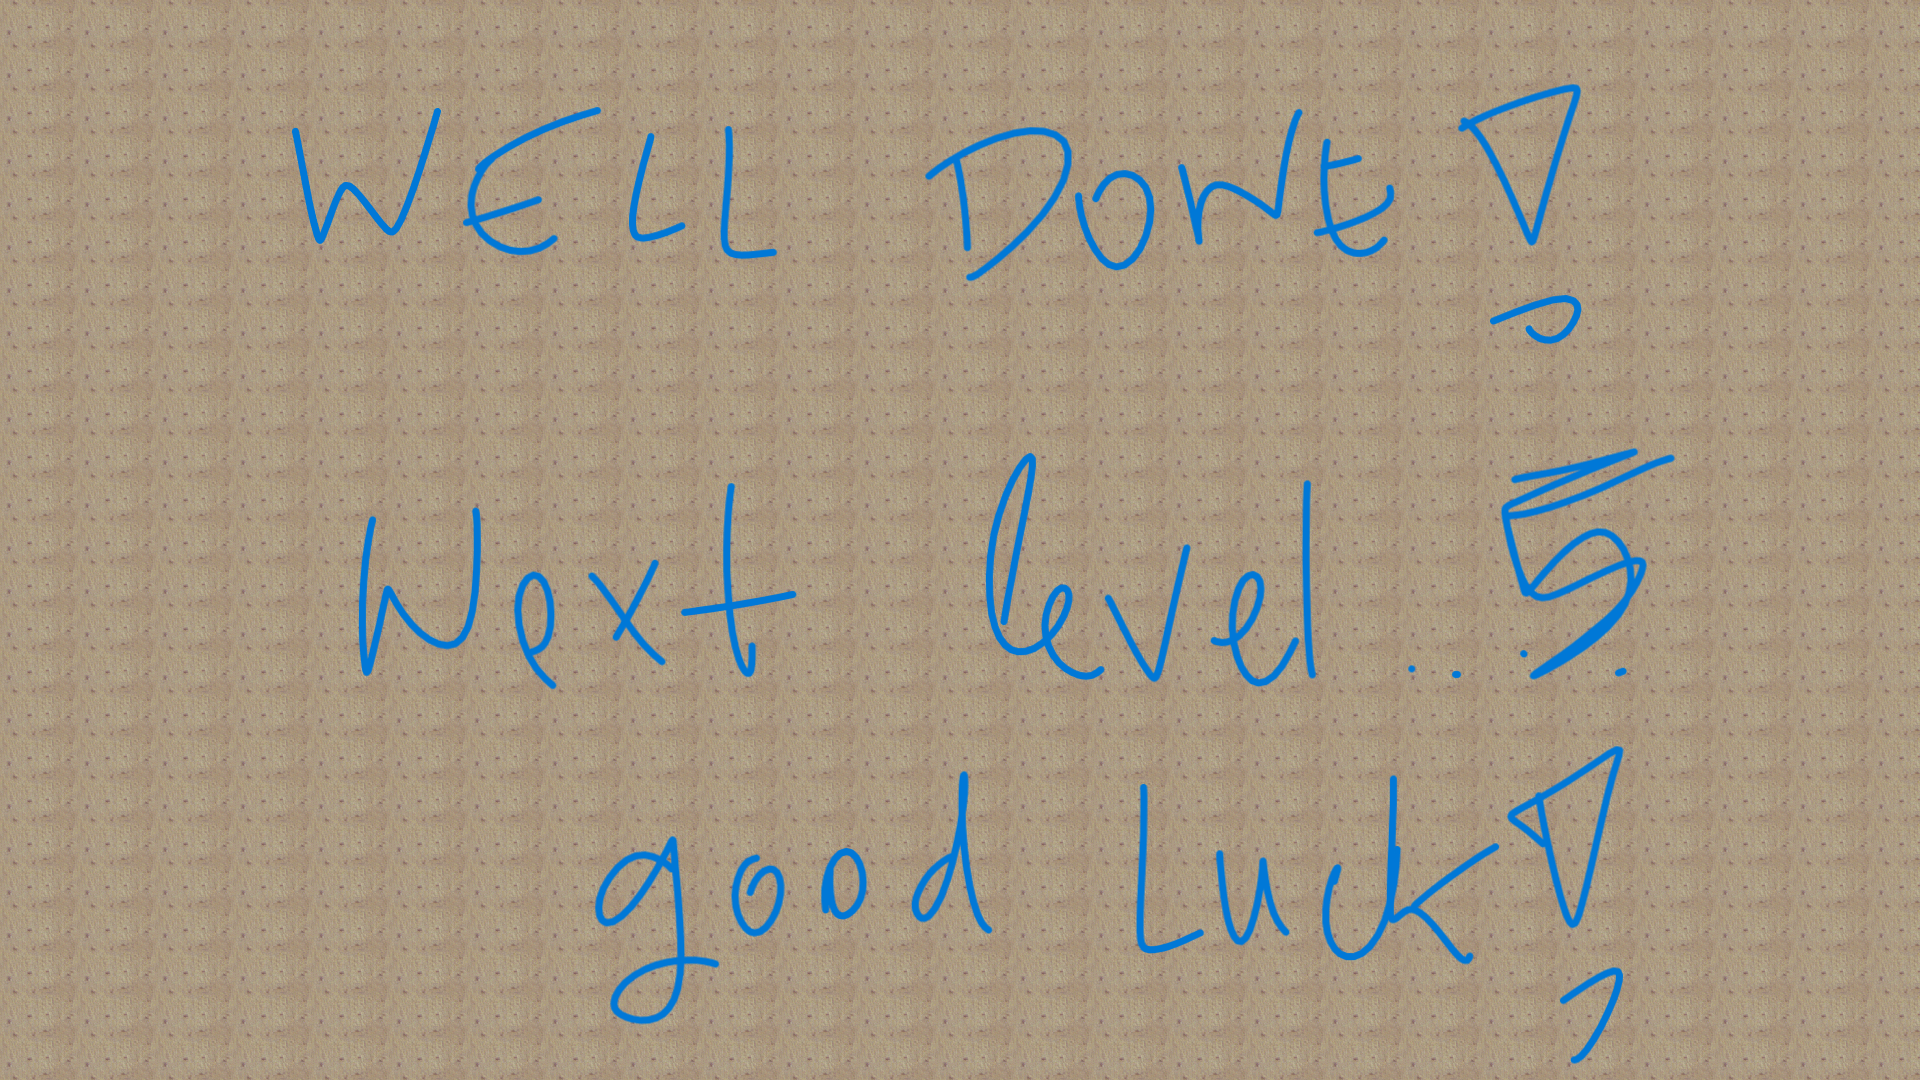 WELL DONE!
Next level... 5.
good Luck!